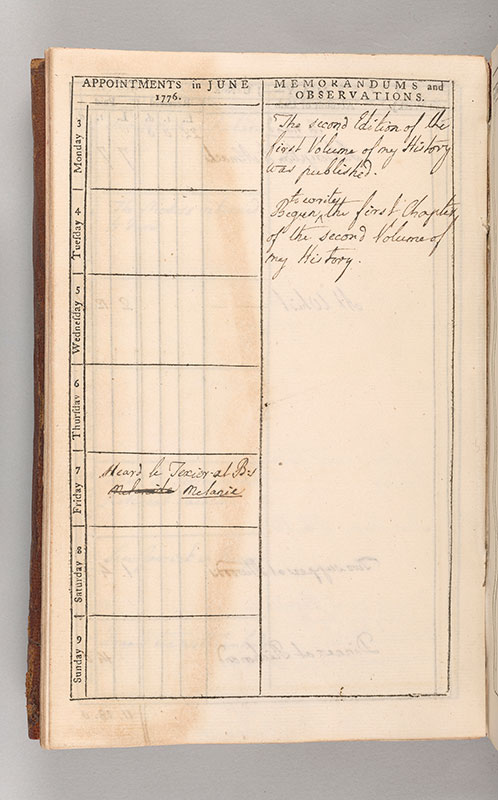 APPOINTMENTS in JUNE
1776.
MEMORANDUMS and
OBSERVATIONS.
Monday 3
The second Edition of the
first Volume of my History
was published.
Tueſday 4
to write
Begun ^ the first Chapter
of the second Volume of
my History.
Wedneſday 5
Thurſday 6
Friday 7
Heard le Texier at B's
Melanie
Saturday 8
Sunday 9